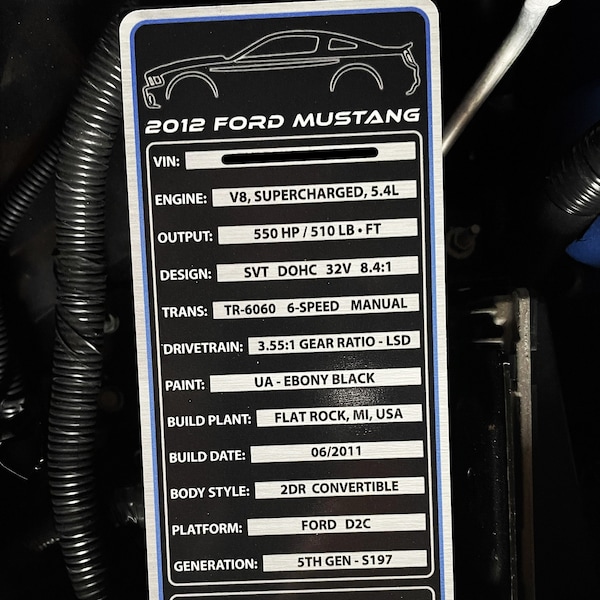 2012 FORD MUSTANG
VIN:
ENGINE: V8, SUPERCHARGED, 5.4L
OUTPUT: 550 HP / 510 LB • FT
DESIGN: SVT DOHC 32V 8.4:1
TRANS: TR-6060 6-SPEED MANUAL
DRIVETRAIN: 3.55:1 GEAR RATIO - LSD
PAINT: UA - EBONY BLACK
BUILD PLANT: FLAT ROCK, MI, USA
BUILD DATE: 06/2011
BODY STYLE: 2DR CONVERTIBLE
PLATFORM: FORD D2C
GENERATION: 5TH GEN - S197